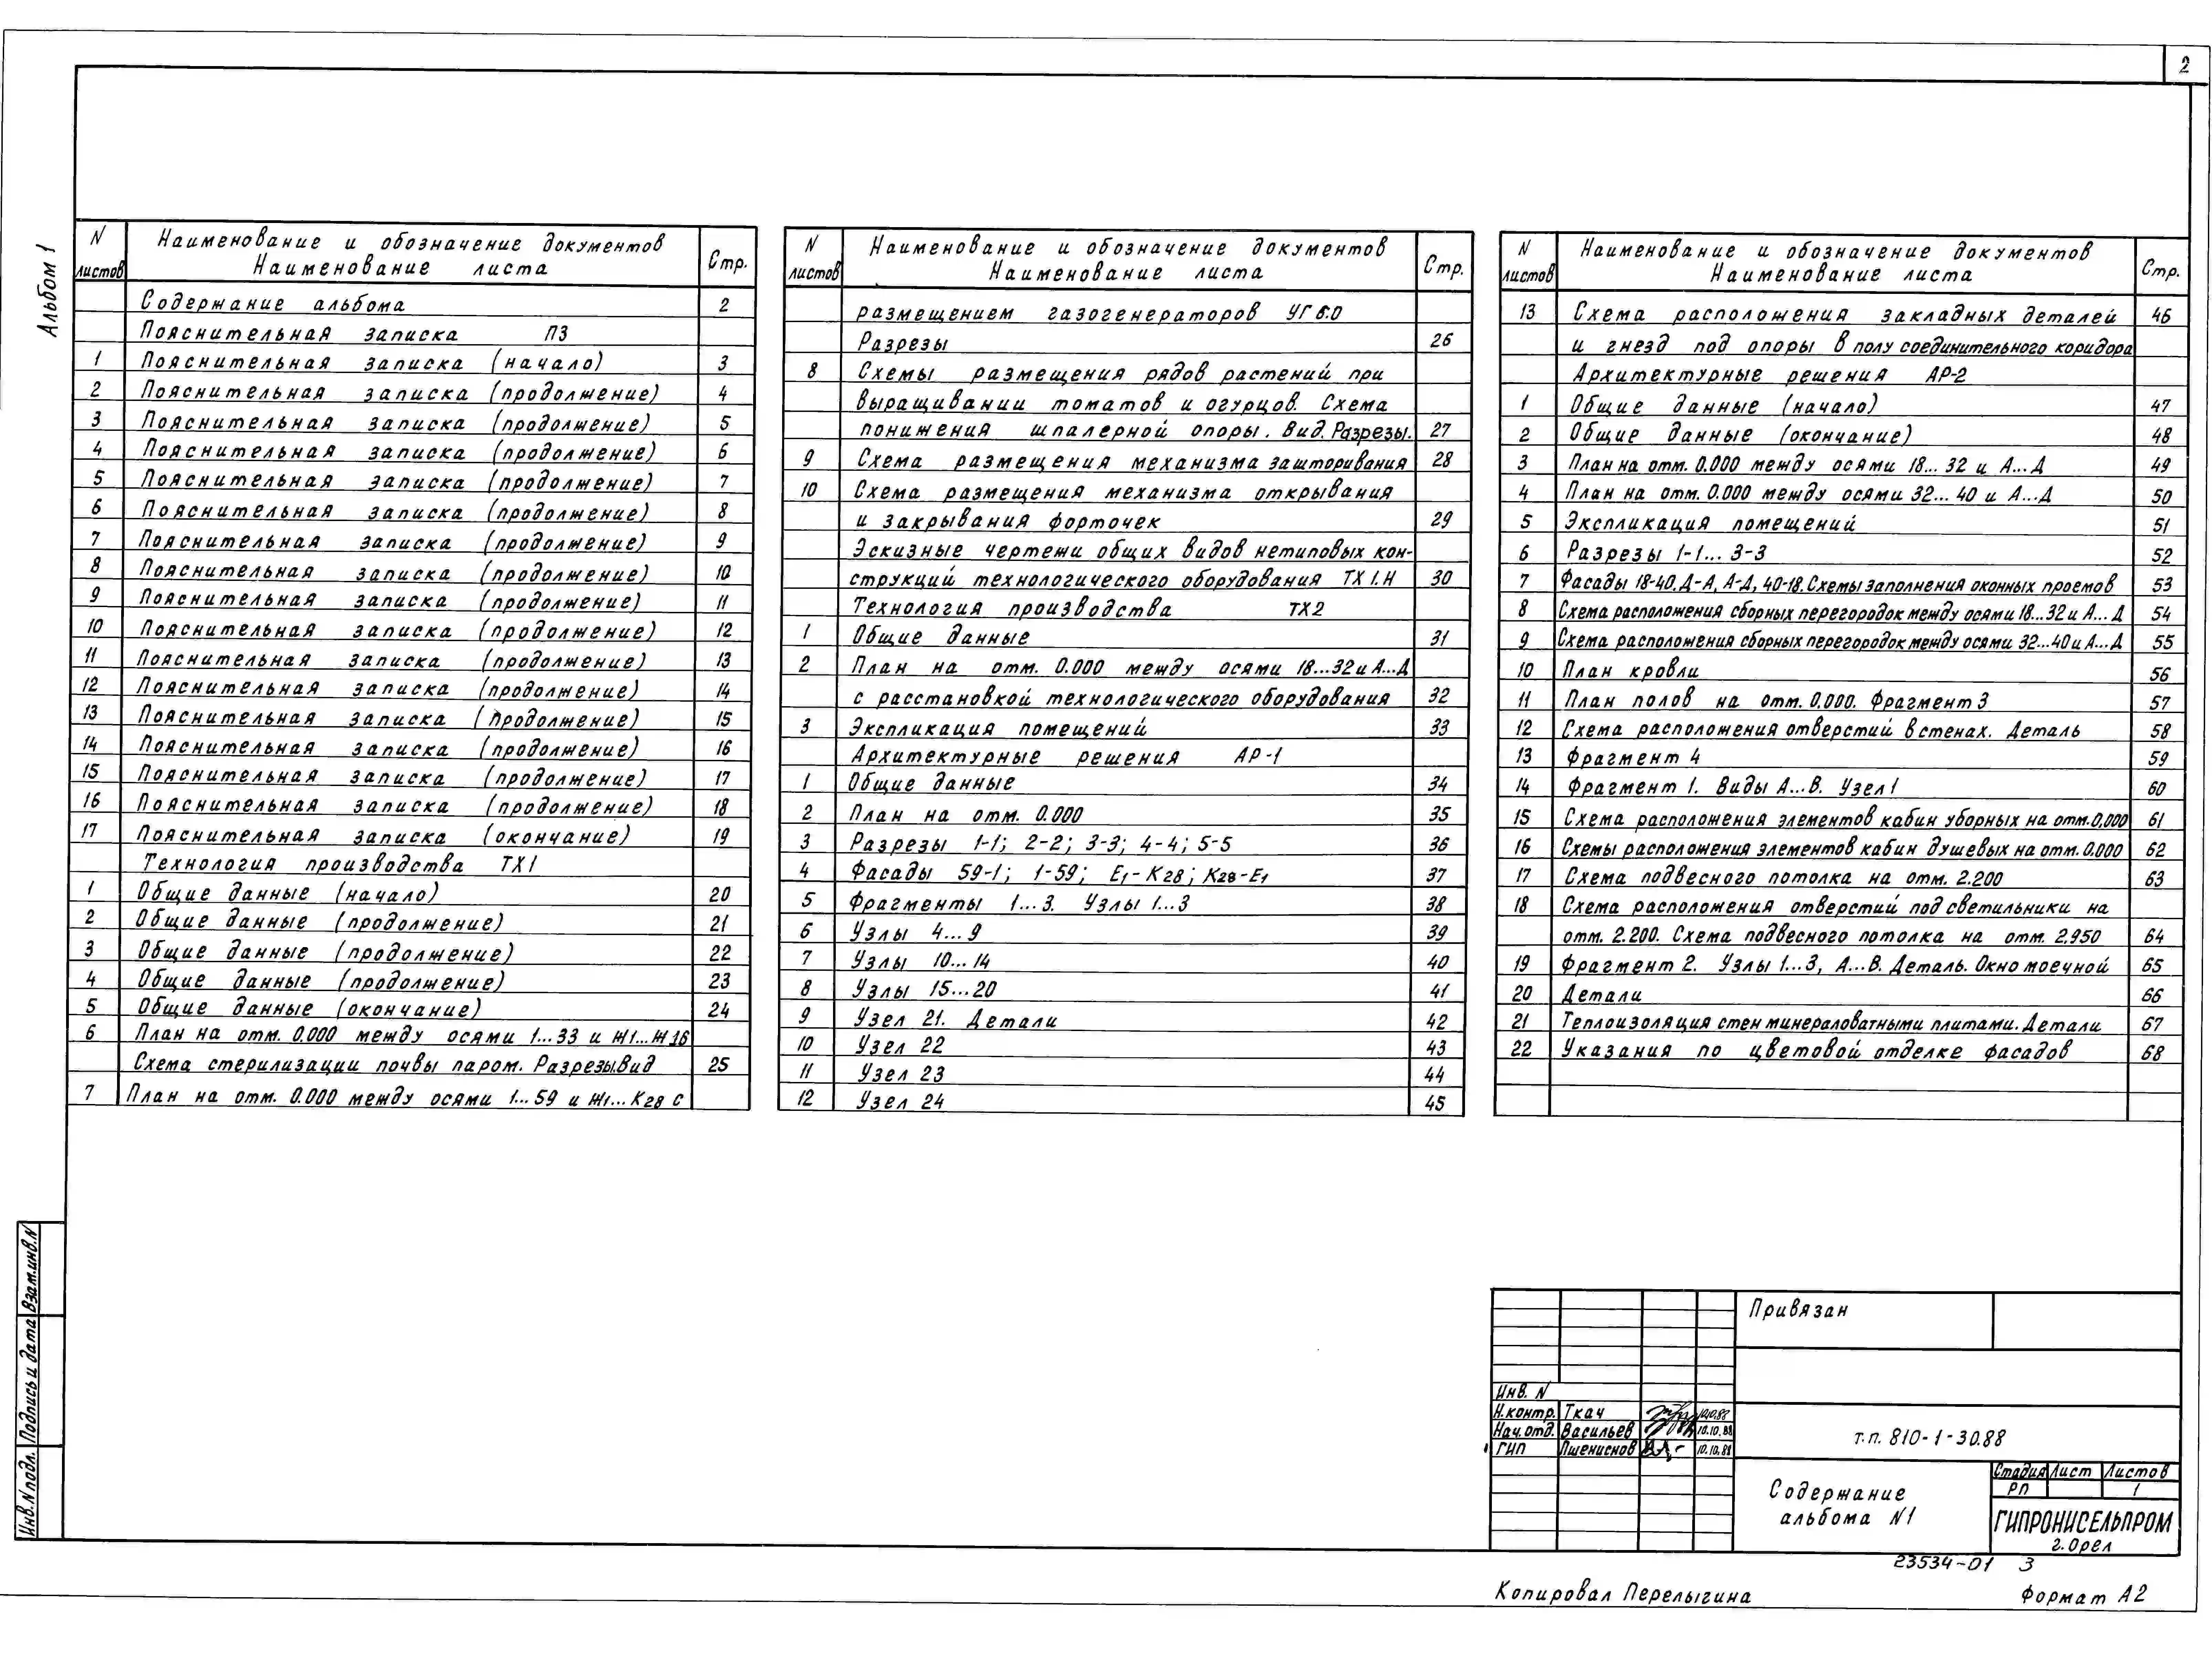 2
Альбом 1
N листов Наименование и обозначение документов Наименование листа Стр.
Содержание альбома 2
Пояснительная записка ПЗ
1 Пояснительная записка (начало) 3
2 Пояснительная записка (продолжение) 4
3 Пояснительная записка (продолжение) 5
4 Пояснительная записка (продолжение) 6
5 Пояснительная записка (продолжение) 7
6 Пояснительная записка (продолжение) 8
7 Пояснительная записка (продолжение) 9
8 Пояснительная записка (продолжение) 10
9 Пояснительная записка (продолжение) 11
10 Пояснительная записка (продолжение) 12
11 Пояснительная записка (продолжение) 13
12 Пояснительная записка (продолжение) 14
13 Пояснительная записка (продолжение) 15
14 Пояснительная записка (продолжение) 16
15 Пояснительная записка (продолжение) 17
16 Пояснительная записка (продолжение) 18
17 Пояснительная записка (окончание) 19
Технология производства ТХ1
1 Общие данные (начало) 20
2 Общие данные (продолжение) 21
3 Общие данные (продолжение) 22
4 Общие данные (продолжение) 23
5 Общие данные (окончание) 24
6 План на отм. 0.000 между осями 1...33 и Ж1...Ж16
Схема стерилизации почвы паром. Разрезы.Вид 25
7 План на отм. 0.000 между осями 1...59 и Ж1...К28 с
N листов Наименование и обозначение документов Наименование листа Стр.
размещением газогенераторов УГ6.0
Разрезы 26
8 Схемы размещения рядов растений при
выращивании томатов и огурцов. Схема
понижения шпалерной опоры. Вид. Разрезы. 27
9 Схема размещения механизма зашторивания 28
10 Схема размещения механизма открывания
и закрывания форточек 29
Эскизные чертежи общих видов нетиповых кон-
струкций технологического оборудования ТХ1.Н 30
Технология производства ТХ2
1 Общие данные 31
2 План на отм. 0.000 между осями 18...32 и А...Д
с расстановкой технологического оборудования 32
3 Экспликация помещений 33
Архитектурные решения АР-1
1 Общие данные 34
2 План на отм. 0.000 35
3 Разрезы 1-1; 2-2; 3-3; 4-4; 5-5 36
4 Фасады 59-1; 1-59; Е1-К28; К28-Е1 37
5 Фрагменты 1...3. Узлы 1...3 38
6 Узлы 4...9 39
7 Узлы 10...14 40
8 Узлы 15...20 41
9 Узел 21. Детали 42
10 Узел 22 43
11 Узел 23 44
12 Узел 24 45
N листов Наименование и обозначение документов Наименование листа Стр.
13 Схема расположения закладных деталей 46
и гнезд под опоры в полу соединительного коридора
Архитектурные решения АР-2
1 Общие данные (начало) 47
2 Общие данные (окончание) 48
3 План на отм. 0.000 между осями 18...32 и А...Д 49
4 План на отм. 0.000 между осями 32...40 и А...Д 50
5 Экспликация помещений 51
6 Разрезы 1-1...3-3 52
7 Фасады 18-40, Д-А, А-Д, 40-18. Схемы заполнения оконных проемов 53
8 Схема расположения сборных перегородок между осями 18...32 и А...Д 54
9 Схема расположения сборных перегородок между осями 32...40 и А...Д 55
10 План кровли 56
11 План полов на отм. 0.000. Фрагмент 3 57
12 Схема расположения отверстий в стенах. Деталь 58
13 Фрагмент 4 59
14 Фрагмент 1. Виды А...В. Узел 1 60
15 Схема расположения элементов кабин уборных на отм.0.000 61
16 Схемы расположения элементов кабин душевых на отм.0.000 62
17 Схема подвесного потолка на отм. 2.200 63
18 Схема расположения отверстий под светильники на
отм. 2.200. Схема подвесного потолка на отм. 2.950 64
19 Фрагмент 2. Узлы 1...3, А...В. Деталь. Окно моечной 65
20 Детали 66
21 Теплоизоляция стен минераловатными плитами. Детали 67
22 Указания по цветовой отделке фасадов 68
Инв.N подл. Подпись и дата Взам.инв.N
Привязан
Инв. N
Н.контр. Ткач 10.10.88
Нач.отд. Васильев 10.10.88
ГИП Пшениснов 10.10.88
т.п. 810-1-30.88
Содержание
альбома N1
Стадия Лист Листов
РП 1
ГИПРОНИСЕЛЬПРОМ
г.Орел
23534-01 3
Копировал Перелыгина Формат А2